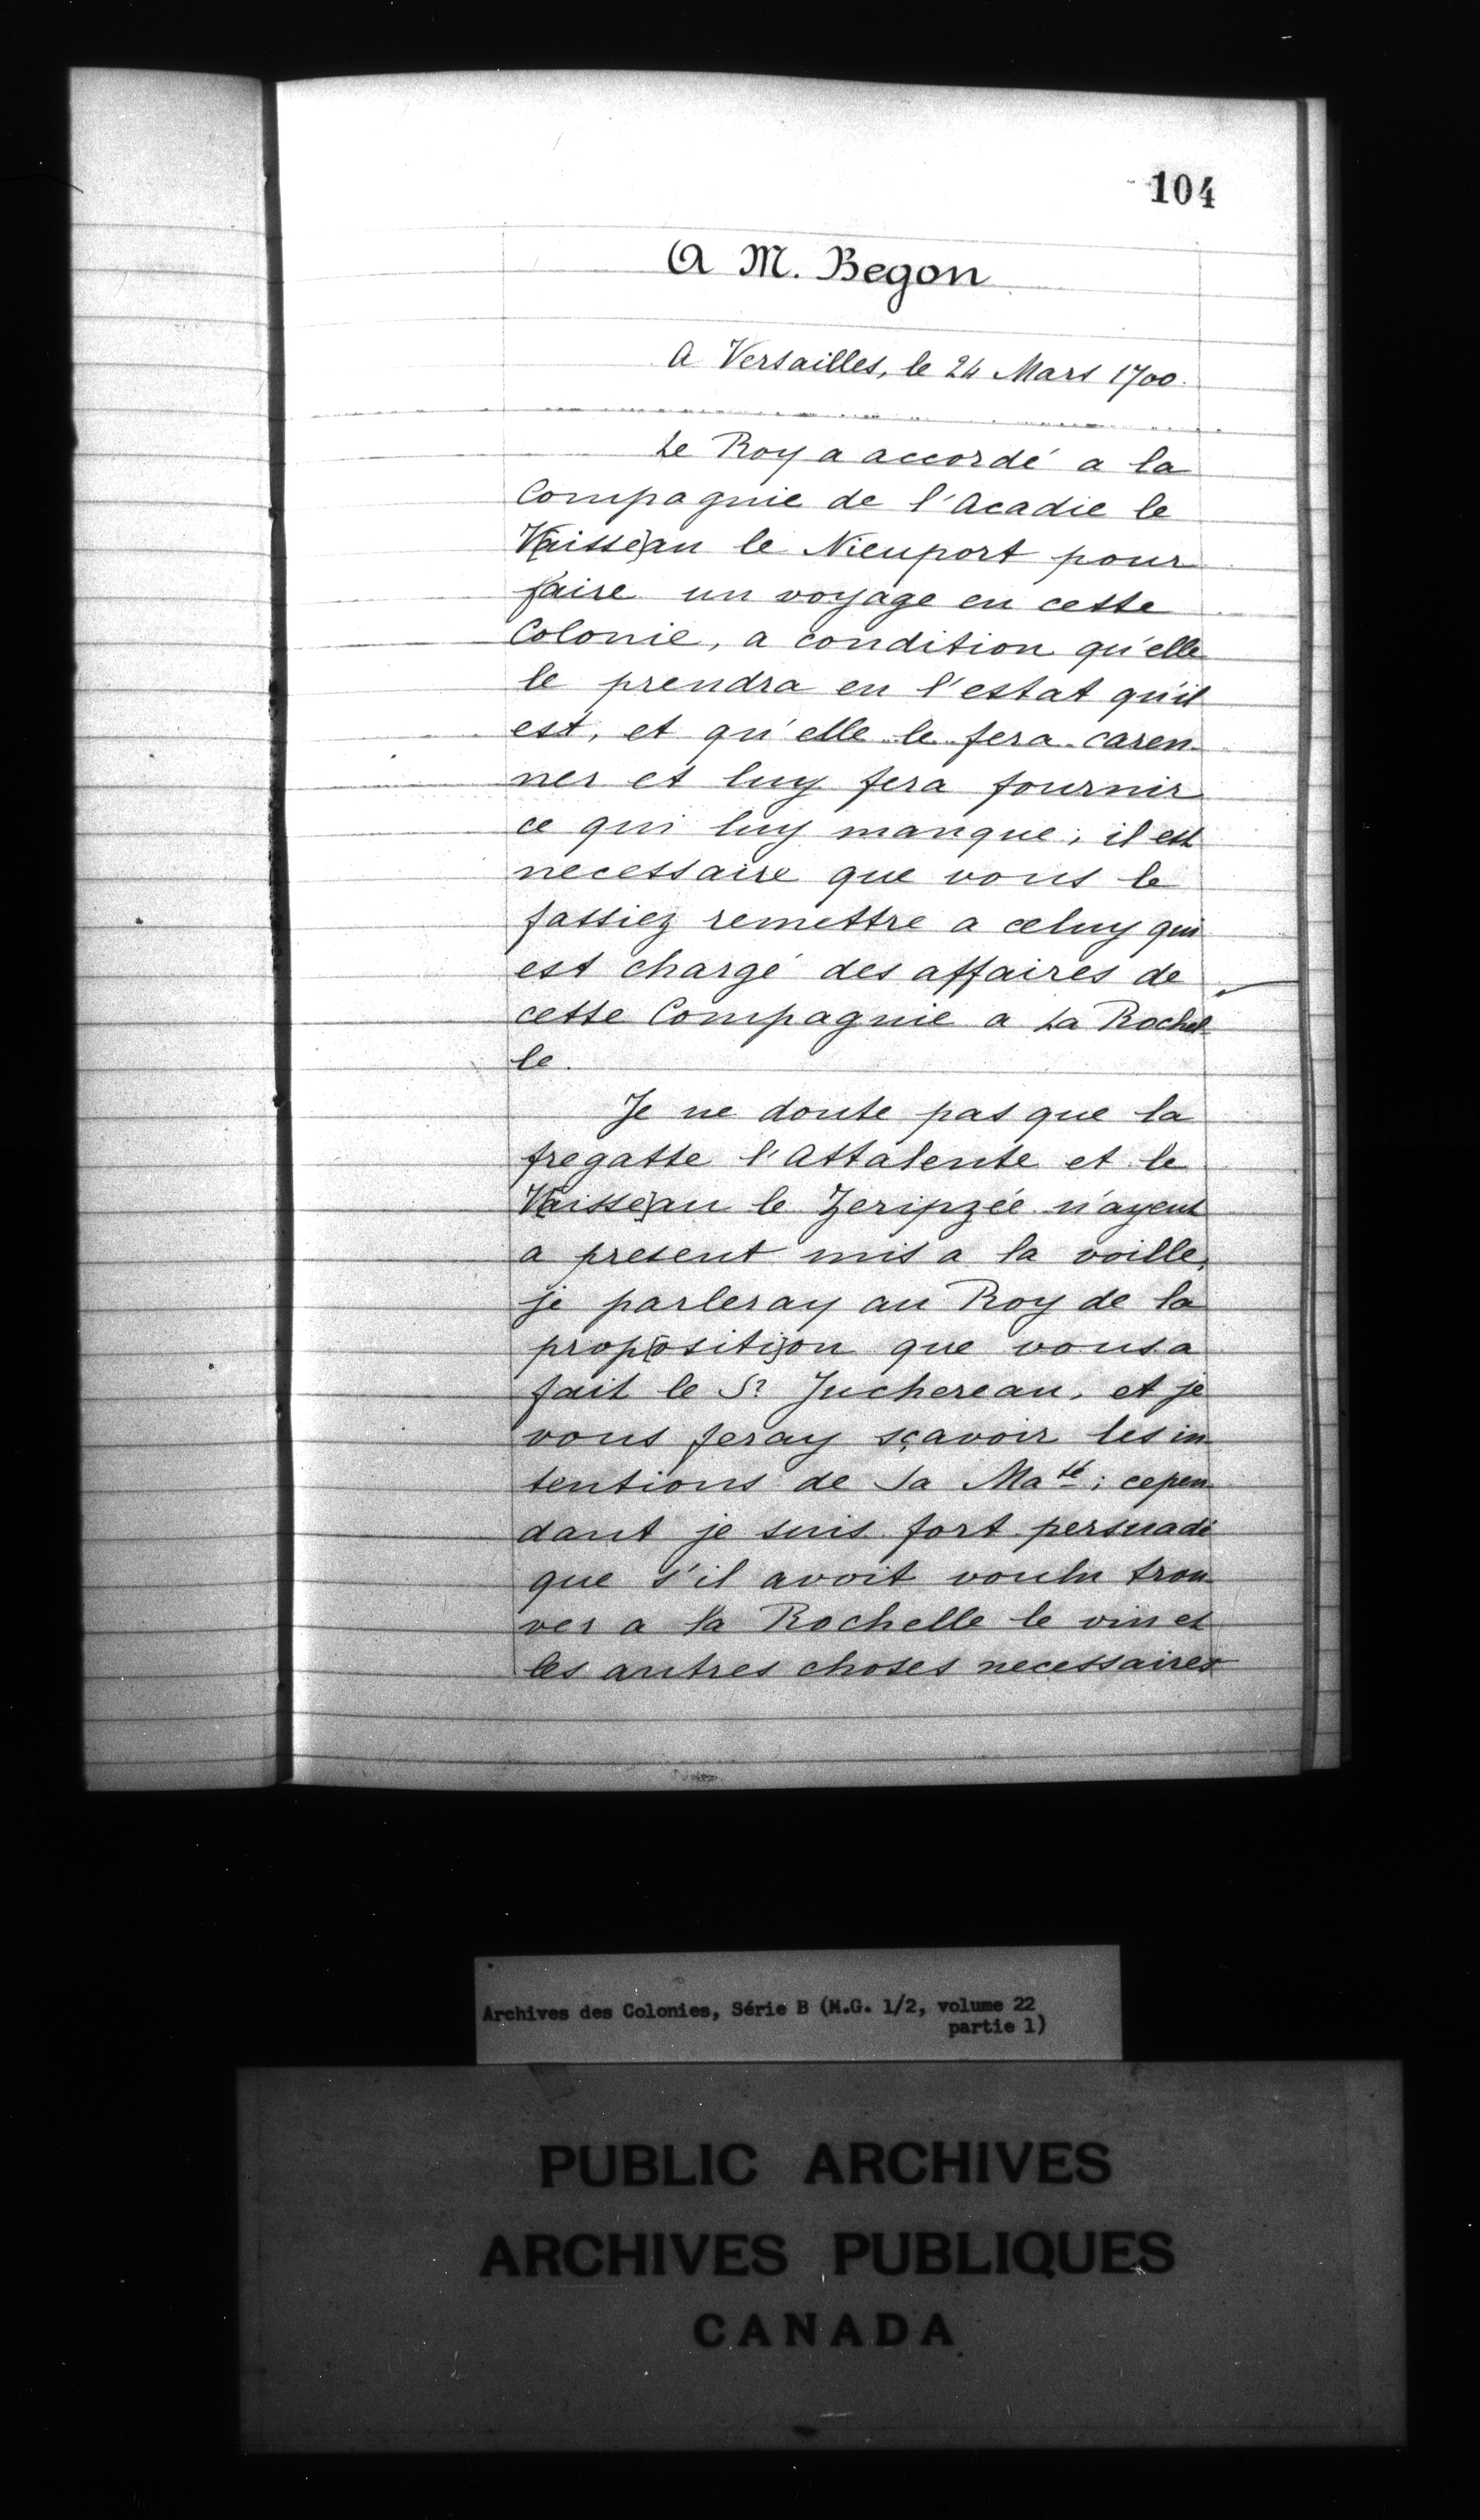 104
A M. Begon
A Versailles, le 24 Mars 1700.
Le Roy a accordé a la
Compagnie de l'Acadie le
V[aisse]au le Nieuport pour
faire un voyage en cette
Colonie, a condition qu'elle
le prendra en l'estat qu'il
est, et qu'elle le fera caren-
ner et luy fera fournir
ce qui luy manque; il est
necessaire que vous le
fassiez remettre a celuy qui
est chargé des affaires de
cette Compagnie a La Rochel-
le.
Je ne doute pas que la
fregatte l'Attalente et le
V[aisse]au le Zeripzée n'ayent
a present mis a la voille,
je parleray au Roy de la
prop[ositi]on que vous a
fait le Sr Juchereau, et je
vous feray sçavoir les in-
tentions de Sa Maté; cepen-
dant je suis fort persuadé
que s'il avoit voulu trou-
ver a la Rochelle le vin et
les autres choses necessaires
Archives des Colonies, Série B (M.G. 1/2, volume 22
partie 1)
PUBLIC ARCHIVES
ARCHIVES PUBLIQUES
CANADA